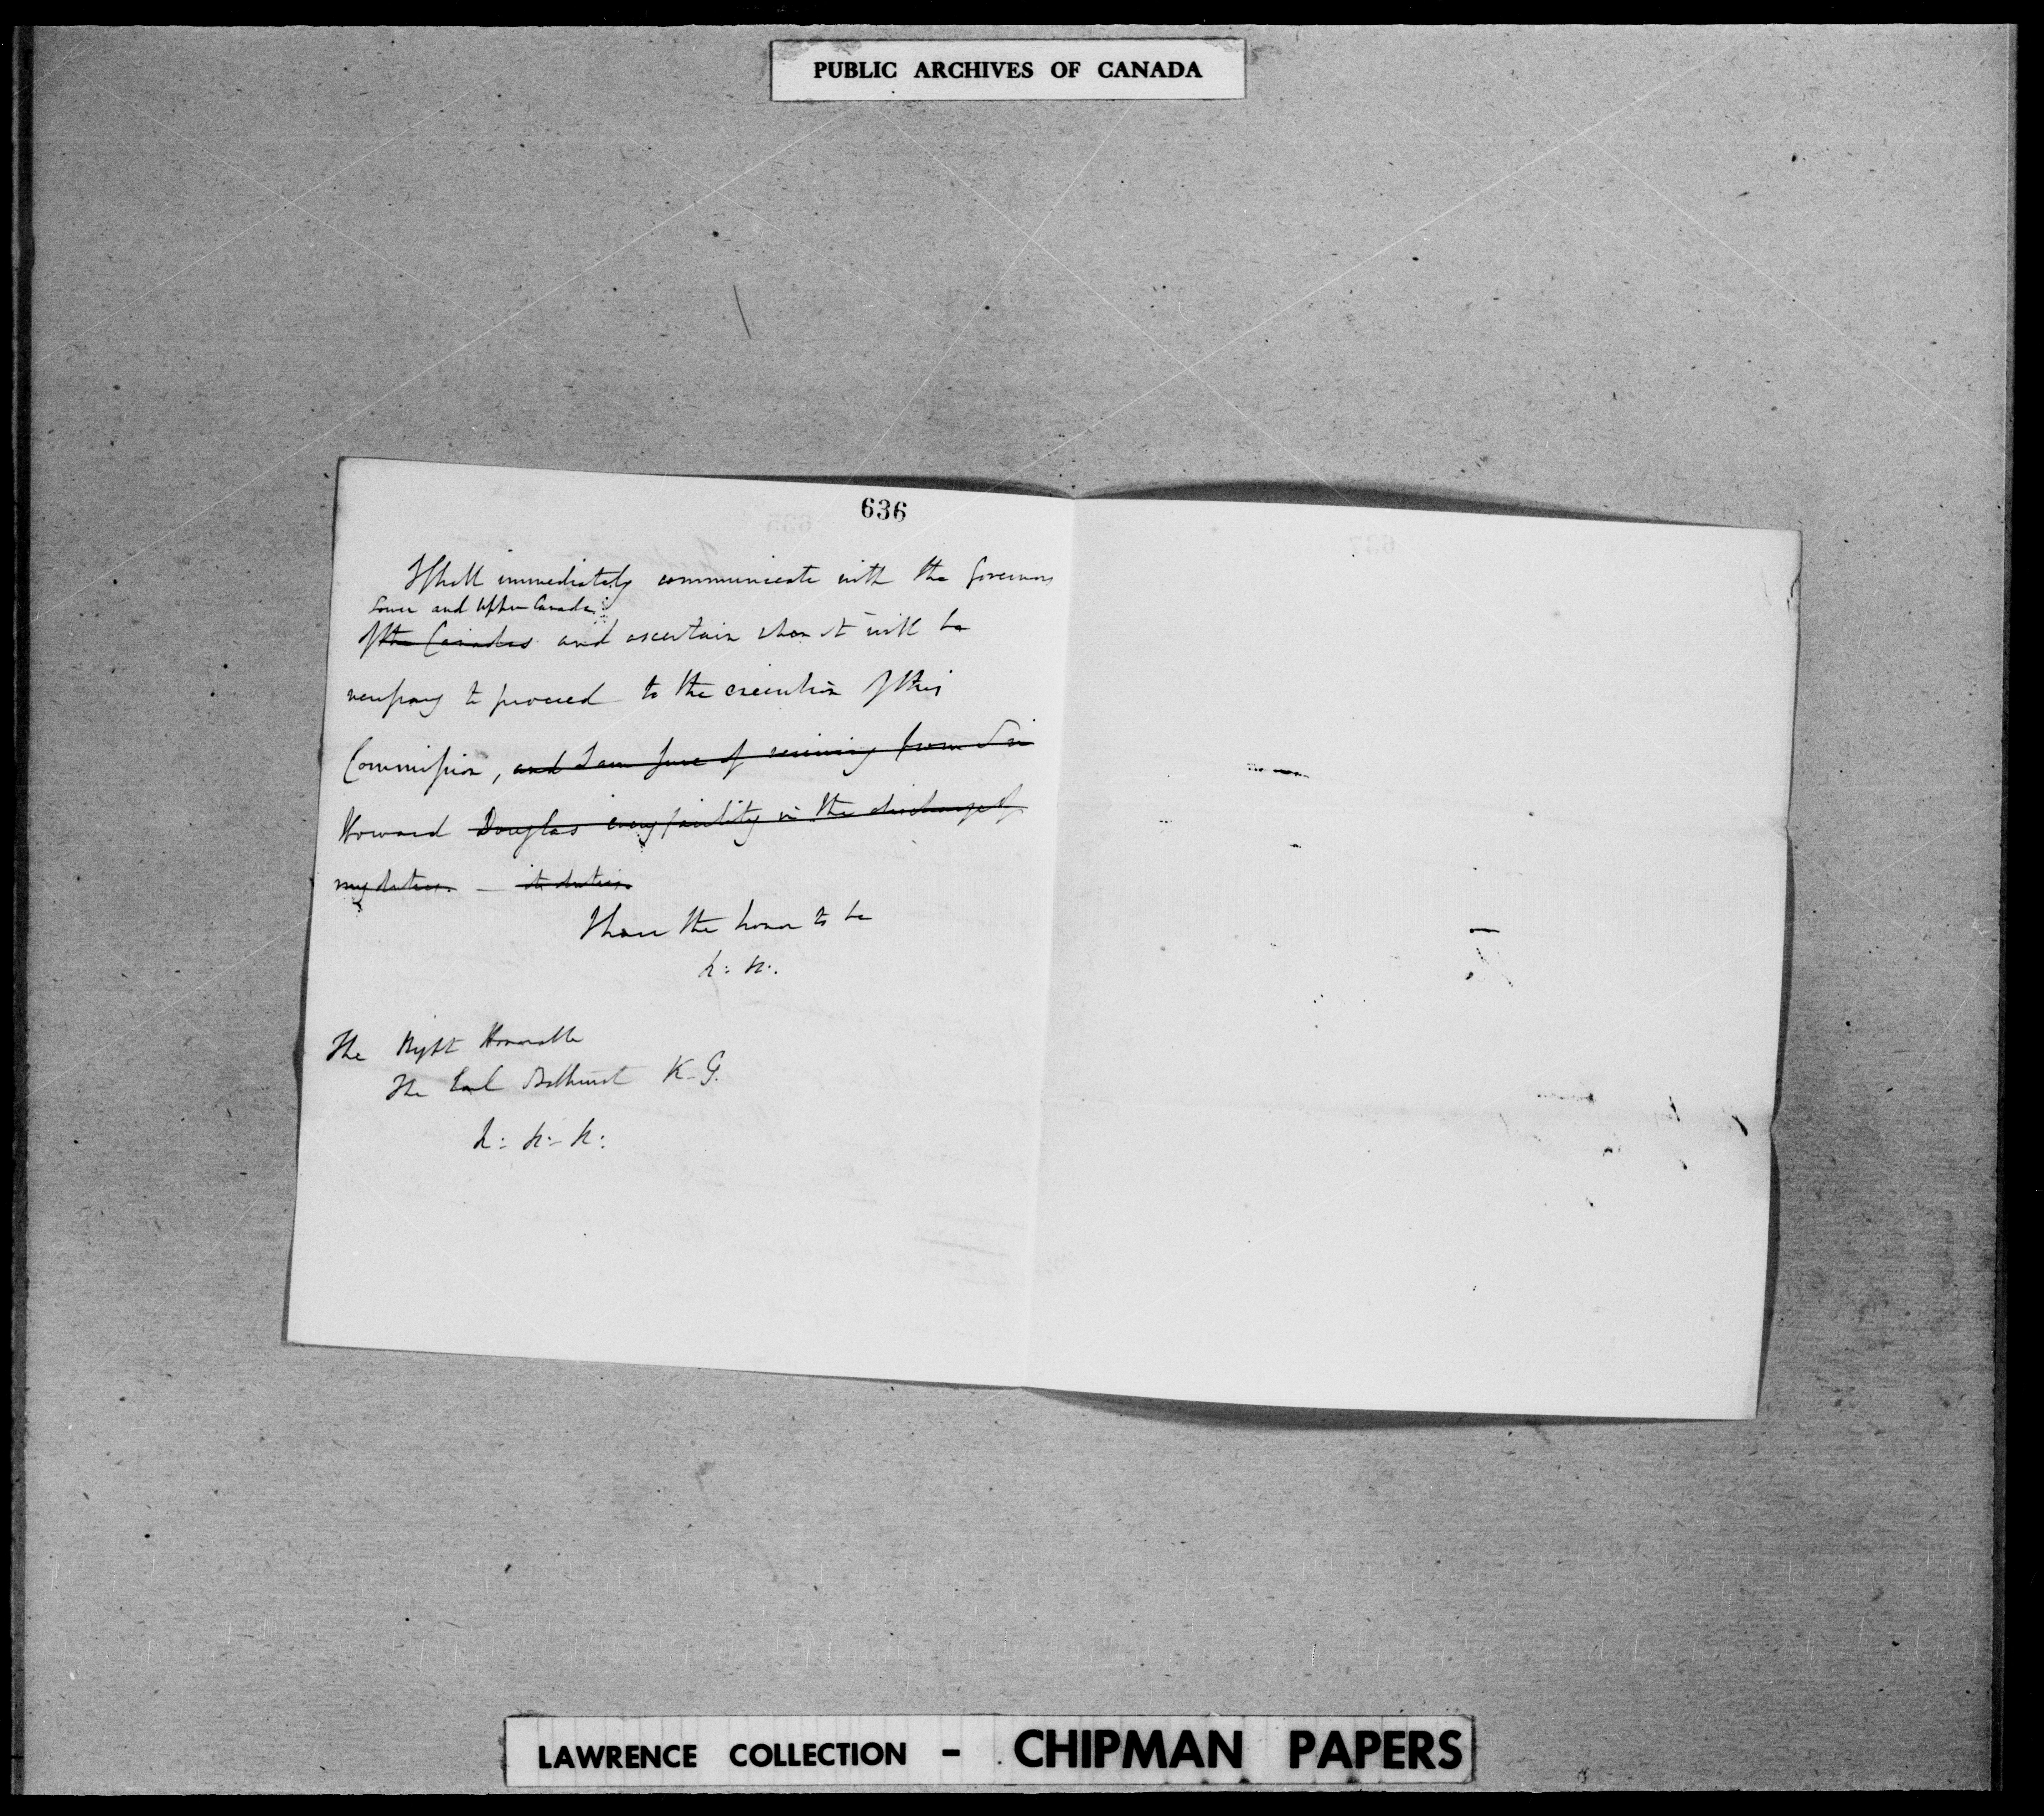 PUBLIC ARCHIVES OF CANADA
636
I shall immediately communicate with the Governors
Lower and Upper Canada
of the Canadas and ascertain when it will be
necessary to proceed to the execution of this
Commission, and I am sure of receiving from Sir
Howard Douglas every facility in the discharge of
my duties. — its duties.
I have the honor to be
&: &:.
The Right Honorable
The Earl Bathurst K-G.
&: &:- &:
LAWRENCE COLLECTION - CHIPMAN PAPERS